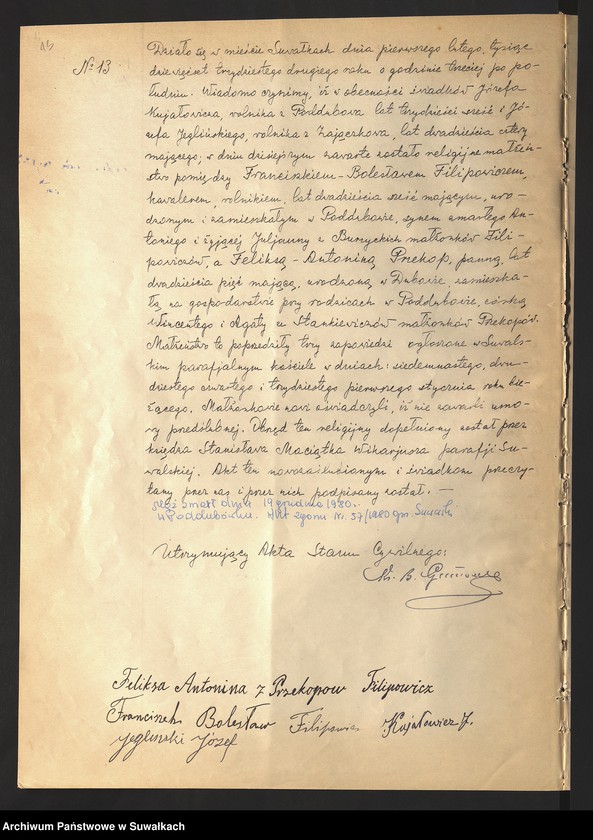 № 13
Działo się w mieście Suwałkach dnia pierwszego lutego, tysiąc
dziewięćset trzydziestego drugiego roku o godzinie trzeciej po po-
łudniu. Wiadomo czynimy, iż w obecności świadków Józefa
Kujałowicza, rolnika z Poddubova lat trzydzieści sześć i Jó-
zefa Jeglińskiego, rolnika z Zajączkova, lat dwadzieścia cztery
mającego; w dniu dzisiejszym zawarte zostało religijne małżeń-
stwo pomiędzy Franciszkiem-Bolesławem Filipowiczem,
kawalerem, rolnikiem, lat dwadzieścia sześć mającym, uro-
dzonym i zamieszkałym w Poddubowie, synem zmarłego An-
toniego i żyjącej Juljanny z Burzyckich małżonków Fili-
powiczów, a Feliksą-Antoniną Przekop, panną, lat
dwadzieścia pięć mającą, urodzoną w Dubowie, zamieszka-
łą na gospodarstwie przy rodzicach w Poddubowie, córką
Wincentego i Agaty ze Stankiewiczów małżonków Przekopów.
Małżeństwo to poprzedziły trzy zapowiedzi ogłoszone w Suwals-
kim parafjalnym kościele w dniach: siedemnastego, dwu-
dziestego czwartego i trzydziestego pierwszego stycznia roku bie-
żącego. Małżonkowie nowi oświadczyli, iż nie zawarli umo-
wy przedślubnej. Obrzęd ten religijny dopełniony został przez
księdza Stanisława Maciątka Wikarjusza parafji Su-
walskiej. Akt ten nowozaślubionym i świadkom przeczy-
tany przez nas i przez nich podpisany został. —
mąż zmarł dnia 19 grudnia 1980.
w Poddubówku. Akt zgonu Nr. 57/1980 gm. Suwałki
Utrzymujący Akta Stanu Cywilnego:
Feliksa Antonina z Przekopow Filipowicz
Franciszek Bolesław Filipowicz Kujałowicz J.
Jegliński Józef
Archiwum Państwowe w Suwałkach